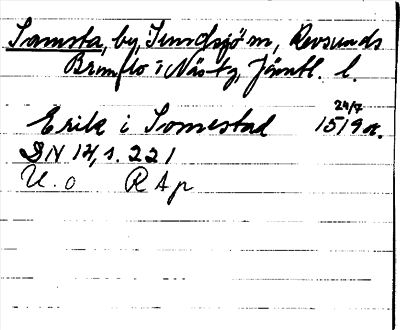 Samsta, by, Sundsjö sn, Revsunds
Brunflo i Näs tg, Jämtl. l.
24/7
Erik i Somestad 1519 or.
DN 14, s. 221
U. o R Ap